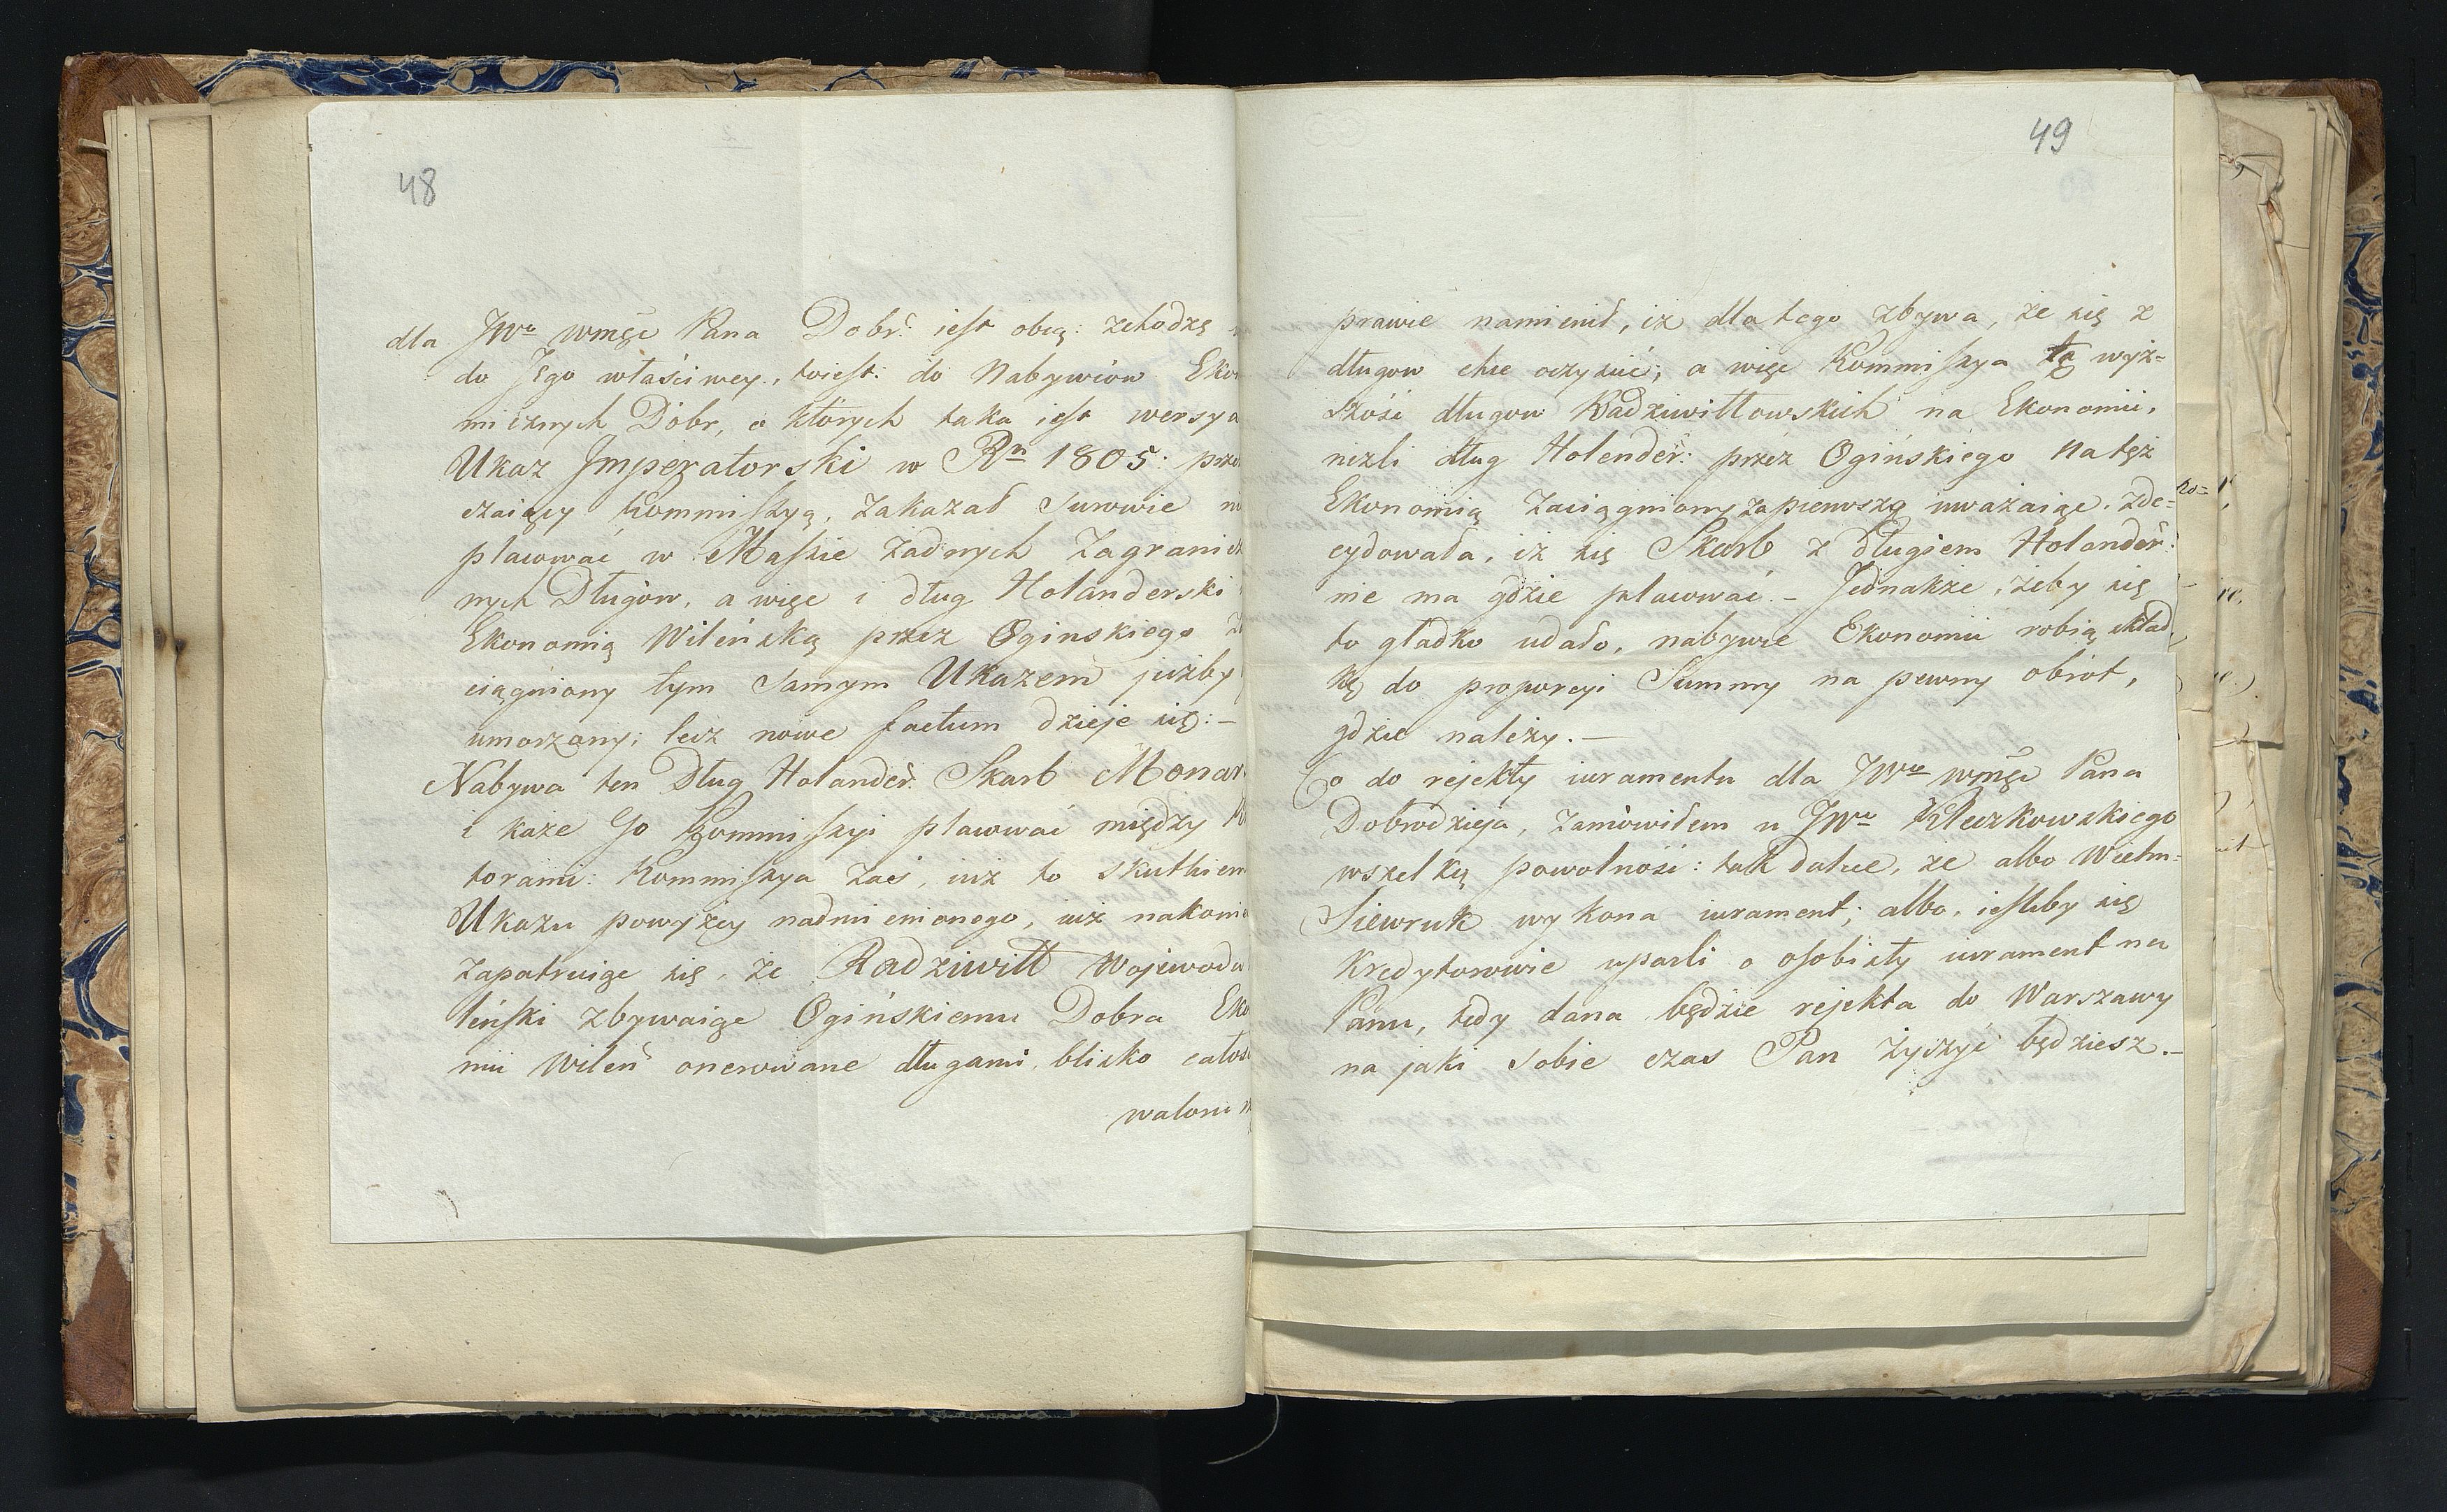 48
dla JWo wmśc Pana Dobr: iest obcą: zchodzę
do Jego właściwey, toiest: do Nabywców Eko
micznych Dóbr, o których taka iest wersya
Ukaz Jmperatorski w Rn 1805: prze
czaiący Kommissyą, zakazał surowie
placować w Massie żadnych Zagranicz
nych Długów, a więc i dług Holanderski
Ekonomią Wileńską przez Oginskiego
ciągniony tym samym Ukazem jużby
umorzony; lecz nowe factum dzieje się: —
Nabywa ten Dług Holander: Skarb Monar
i każe Go Kommissyi placować między
torami: Kommissya zaś, iuż to skutkiem
Ukazu powyżey nadmienionego, iuż nakonie
zapatruiąc się, że Radziwiłł Wojewoda
leński zbywaiąc Ogińskiemu Dobra Eko
mii Wileń onerowane długami, blizko całos
waloru
49
prawie namienił, iż dla tego zbywa, że się z
długow chce oczyścić; a więc Kommissya tę wyż=
szość długow Radziwiłłowskich na Ekonomii,
niżli dług Holender: przez Ogińskiego na tęż
Ekonomią zaciągniony za pierwszą uważaiąc, zde=
cydowała, iż się Skarb z Długiem Holander:
nie ma gdzie placować. — Jednakże, żeby się
to gładko udało, nabywce Ekonomii robią skład
kę do proporcyi Summy na pewny obrot,
gdzie należy. —
Co do rejekty iuramentu dla JWo wmśc Pana
Dobrodzieja, zamówiłem u JWo Kleczkowskiego
wszelką powolność: tak dalece, że albo Wielm=
Siewruk wykona iurament; albo, iesliby się
Kredytorowie uparli o osobisty iurament na
Panu, tedy dana będzie rejekta do Warszawy
na jaki sobie czas Pan życzyć będziesz. —